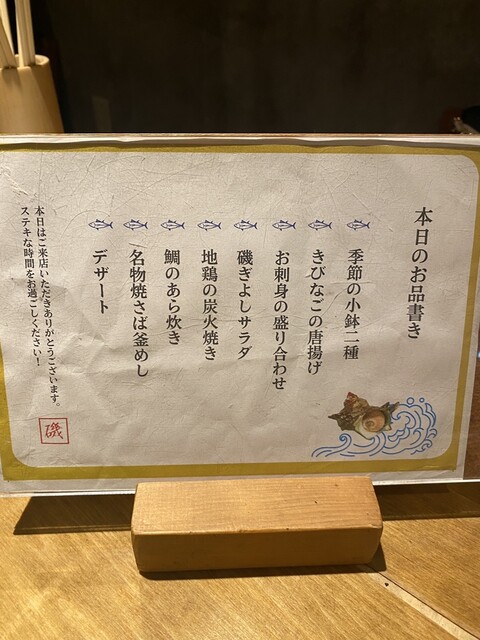 本日のお品書き
季節の小鉢二種
きびなごの唐揚げ
お刺身の盛り合わせ
磯ぎよしサラダ
地鶏の炭火焼き
鯛のあら炊き
名物焼さば釜めし
デザート
本日はご来店いただきありがとうございます。
ステキな時間をお過ごしください！
磯